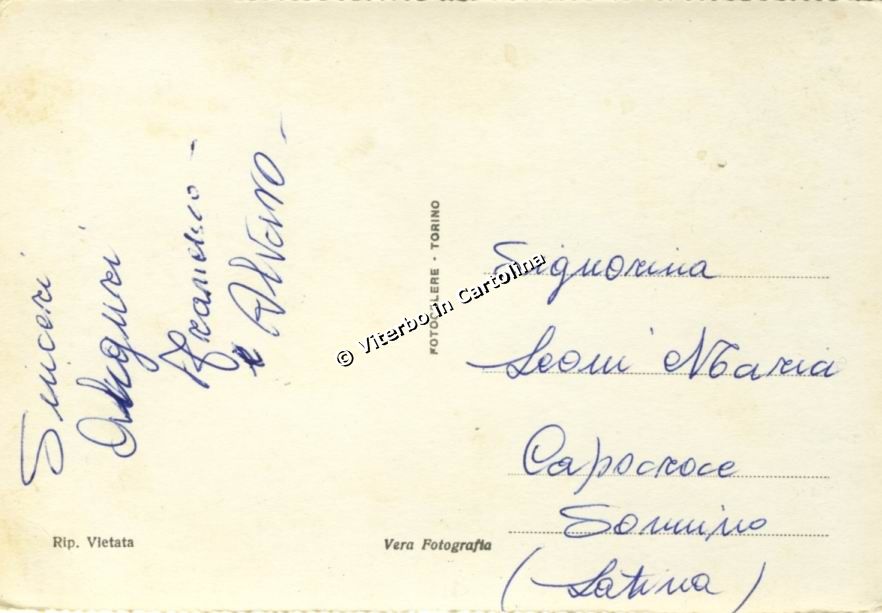 Sinceri
Auguri
Franco -
e Alvaro -
FOTOCELERE - TORINO
© Viterbo in Cartolina
Signorina
Leoni Maria
Capocroce
Sonnino
(Latina)
Rip. Vietata
Vera Fotografia